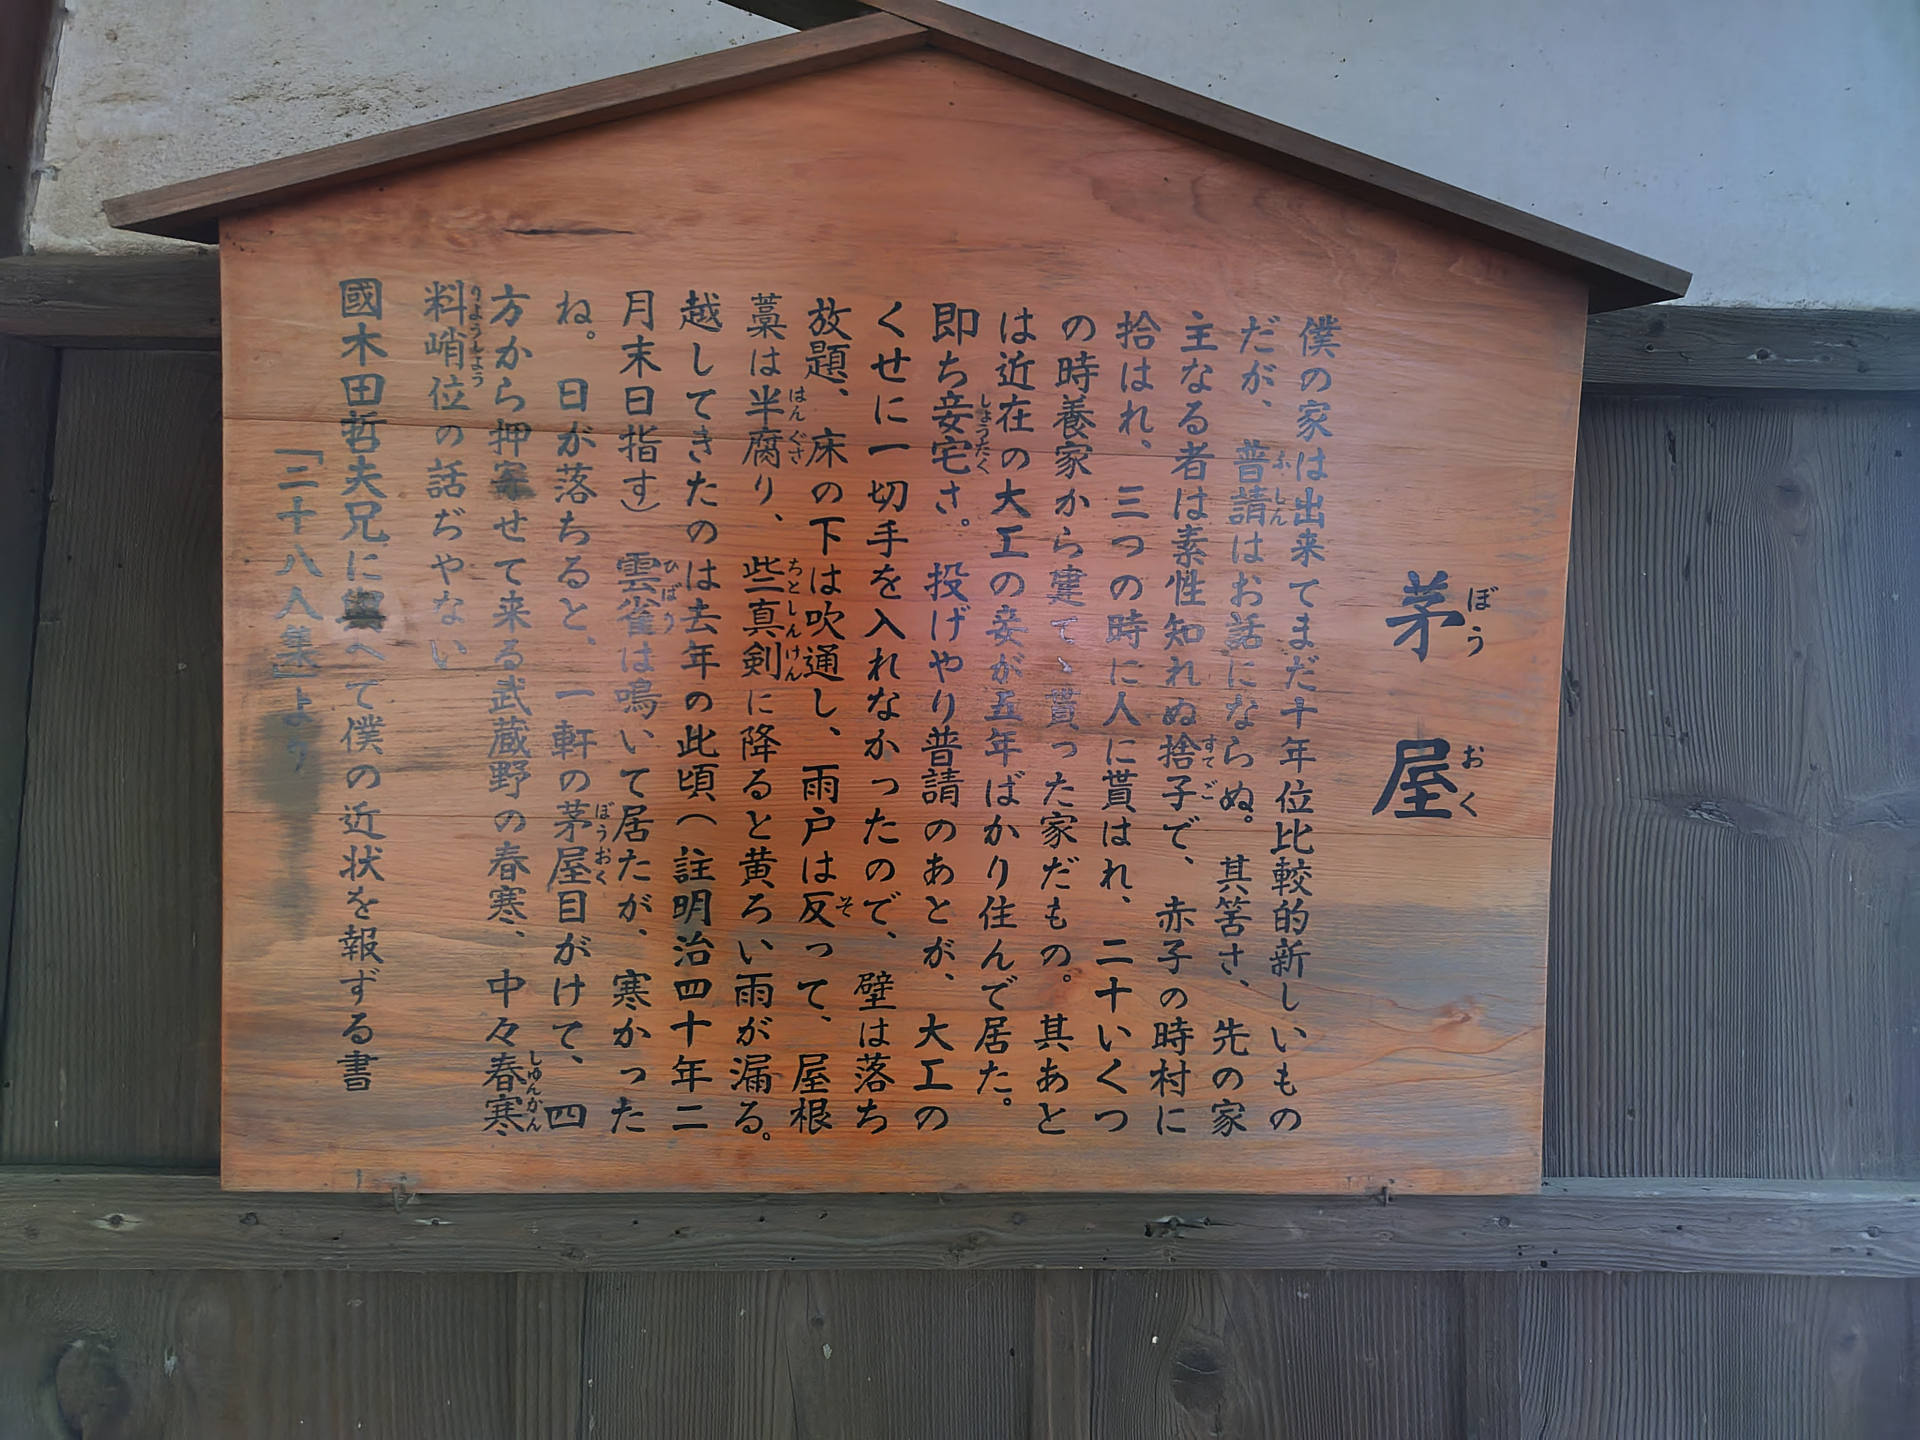 茅屋
僕の家は出来てまだ十年位比較的新しいもの
だが、普請はお話にならぬ。其筈さ、先の家
主なる者は素性知れぬ捨子で、赤子の時村に
拾はれ、三つの時に人に貰はれ、二十いくつ
の時養家から建てゝ貰った家だもの。其あと
は近在の大工の妾が五年ばかり住んで居た。
即ち妾宅さ。投げやり普請のあとが、大工の
くせに一切手を入れなかったので、壁は落ち
放題、床の下は吹通し、雨戸は反って、屋根
藁は半腐り、些真剣に降ると黄ろい雨が漏る。
越してきたのは去年の此頃(註明治四十年二
月末日指す)雲雀は鳴いて居たが、寒かった
ね。日が落ちると、一軒の茅屋目がけて、四
方から押寄せて来る武蔵野の春寒、中々春寒
料峭位の話ぢやない
國木田哲夫兄に與へて僕の近状を報ずる書
「二十八人集」より